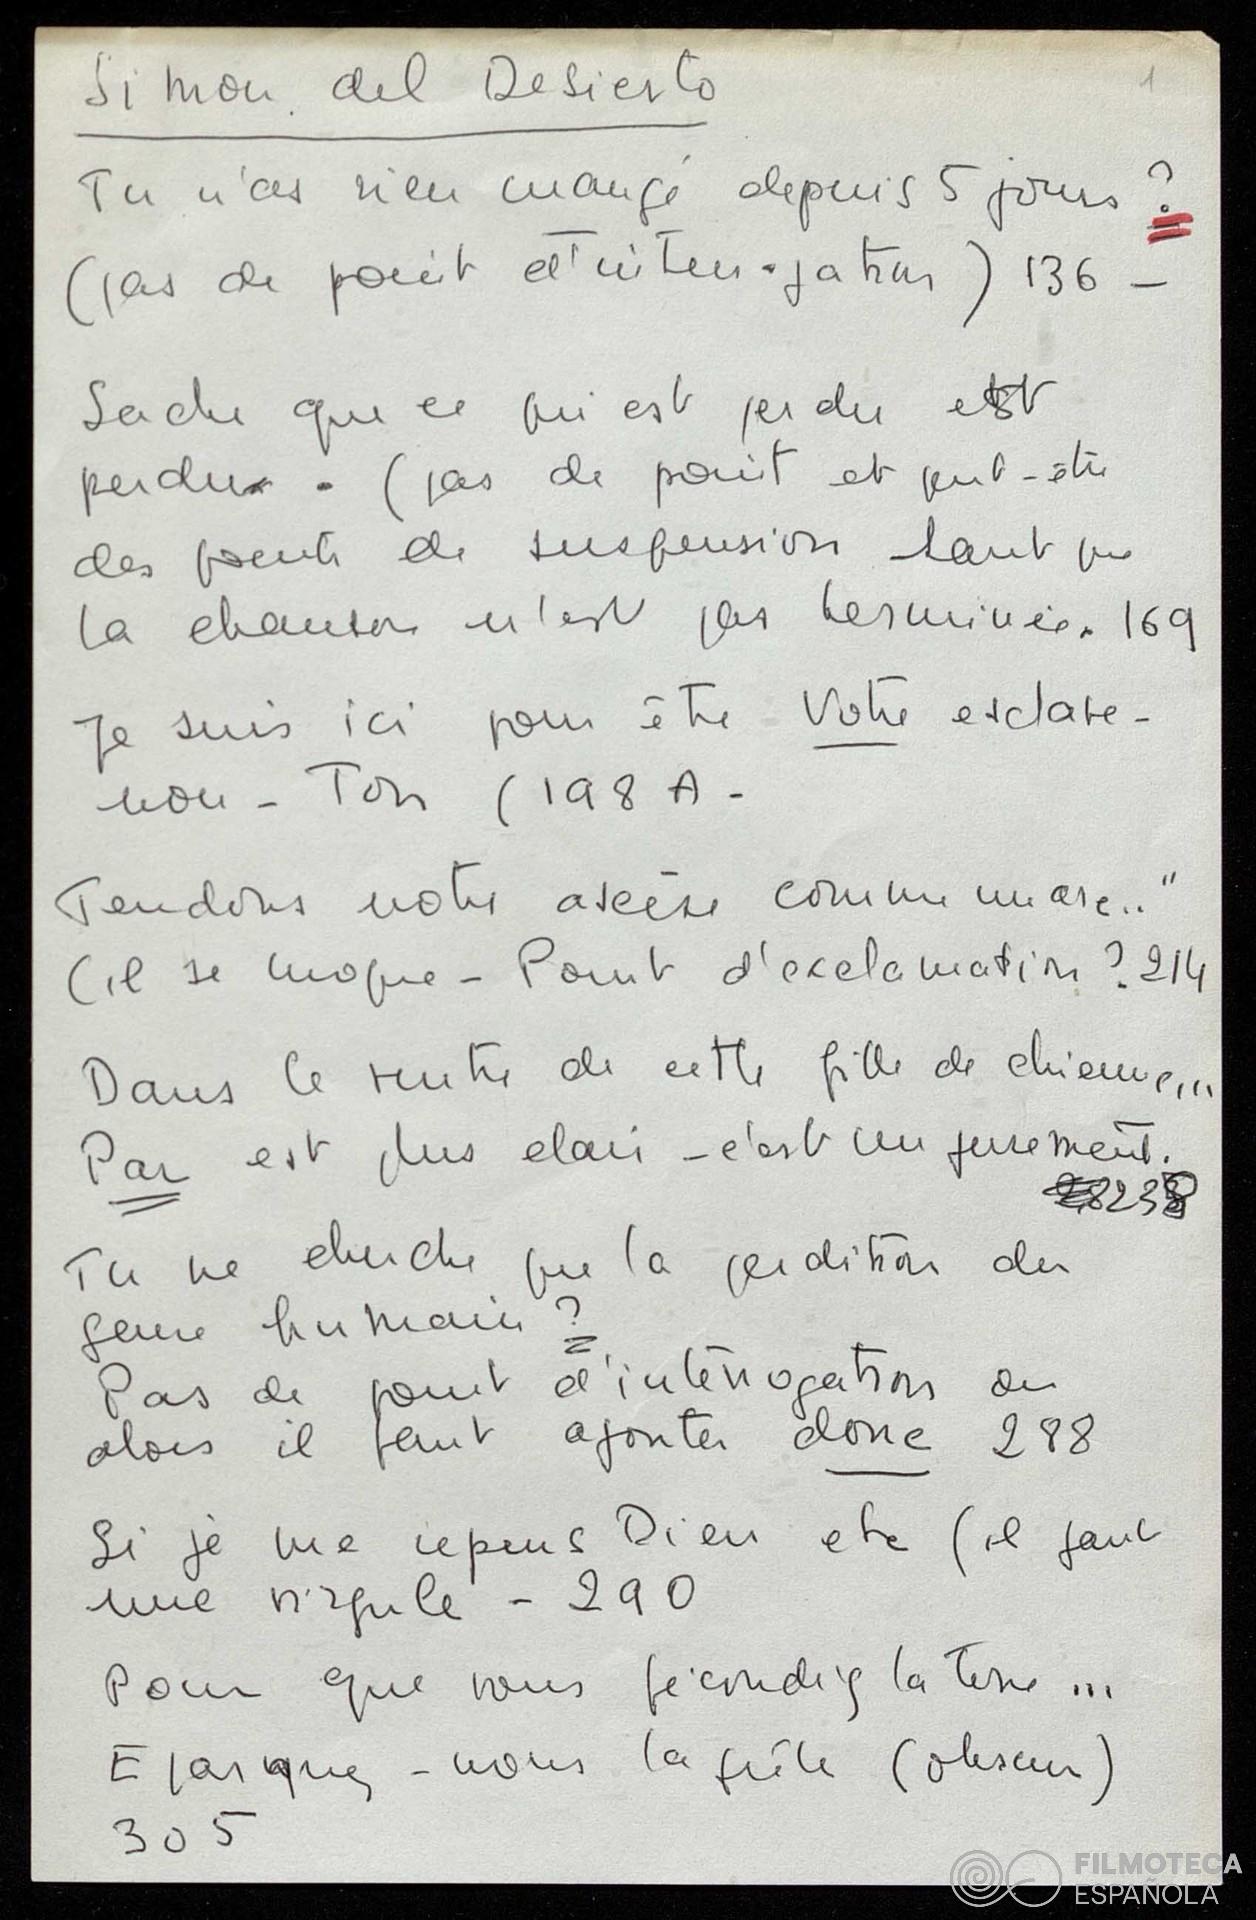 Simon del Desierto
1
Tu n'as rien mangé depuis 5 jours ?
(pas de point d'interrogation) 136 -
Sache que ce qui est perdu est
perdu . (pas de point et peut-être
des points de suspension tant que
la chanson n'est pas terminée. 169
Je suis ici pour être Votre esclave -
non - Ton (198 A -
Tendons notre ascèse comme un arc.."
(il se moque - Point d'exclamation ? 214
Dans le ventre de cette fille de chienne...
Par est plus clair - c'est un jurement.
238
Tu ne cherche que la perdition du
genre humain ?
Pas de point d'intérrogation ou
alors il faut ajouter donc 288
Si je me repens Dieu etc (il faut
une virgule - 290
Pour que vous fécondiez la terre ...
Epargnez - nous la grêle (obscur)
305
FILMOTECA
ESPAÑOLA